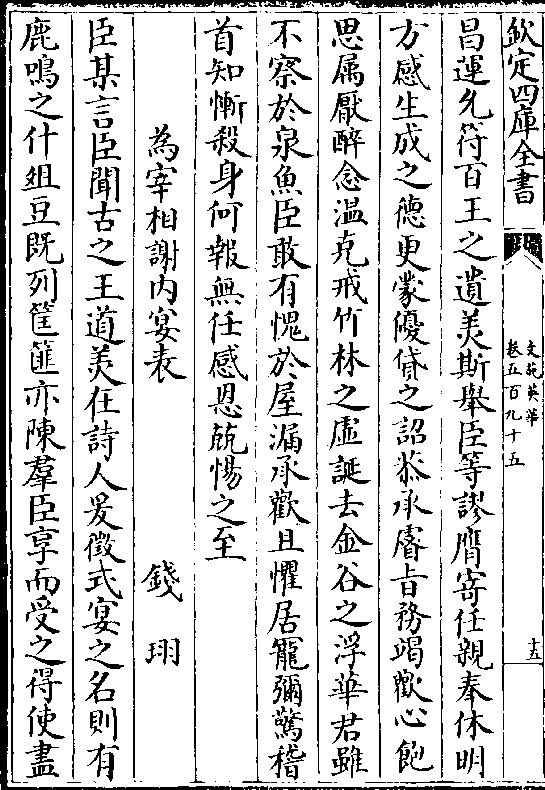 欽定四庫全書
文苑英華
卷五百九十五
十五
昌運允符百王之遺美斯舉臣等謬膺寄任親奉休明
方感生成之德更蒙優貸之詔恭承睿旨務竭歡心飽
思属厭醉念温克戒竹林之虛誕去金谷之浮華君雖
不察於泉魚臣敢有愧於屋漏承歡且懼居寵彌驚稽
首知慚殺身何報無任感恩兢惕之至
為宰相謝内宴表 錢珝
臣某言臣聞古之王道美在詩人爰徵式宴之名則有
鹿鳴之什俎豆既列筐篚亦陳羣臣享而受之得使盡